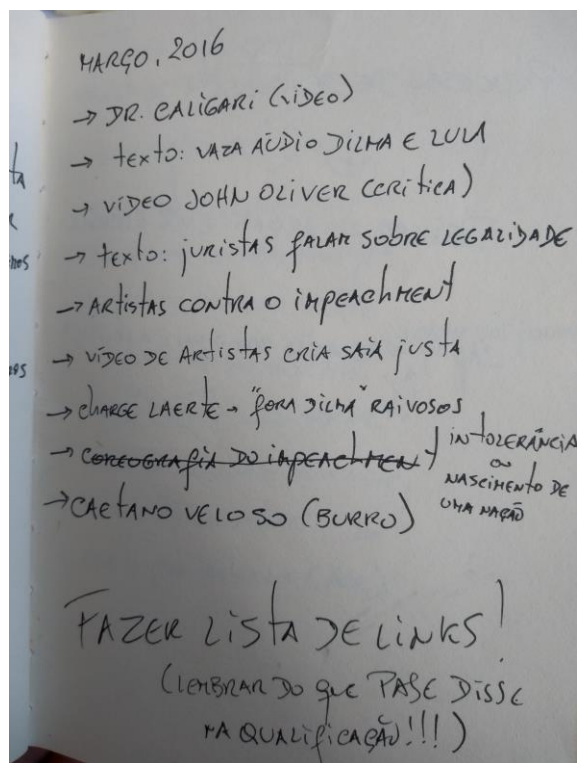 MARÇO, 2016
→ DR. CALIGARI (VIDEO)
→ texto: VAZA AÚDIO DILMA E LULA
→ VIDEO JOHN OLIVER (CRÍTICA)
→ texto: JURISTAS FALAM SOBRE LEGALIDADE
→ ARTISTAS CONTRA O IMPEACHMENT
→ VÍDEO DE ARTISTAS CRIA SAIA JUSTA
→ CHARGE LAERTE → "FORA DILMA" RAIVOSOS
→ COREOGRAFIA DO IMPEACHMENT
INTOLERÂNCIA
OU
NASCIMENTO DE
UMA NAÇÃO
→ CAETANO VELOSO (BURRO)
FAZER LISTA DE LINKS!
(LEMBRAR DO QUE PASE DISSE
NA QUALIFICAÇÃO!!!)